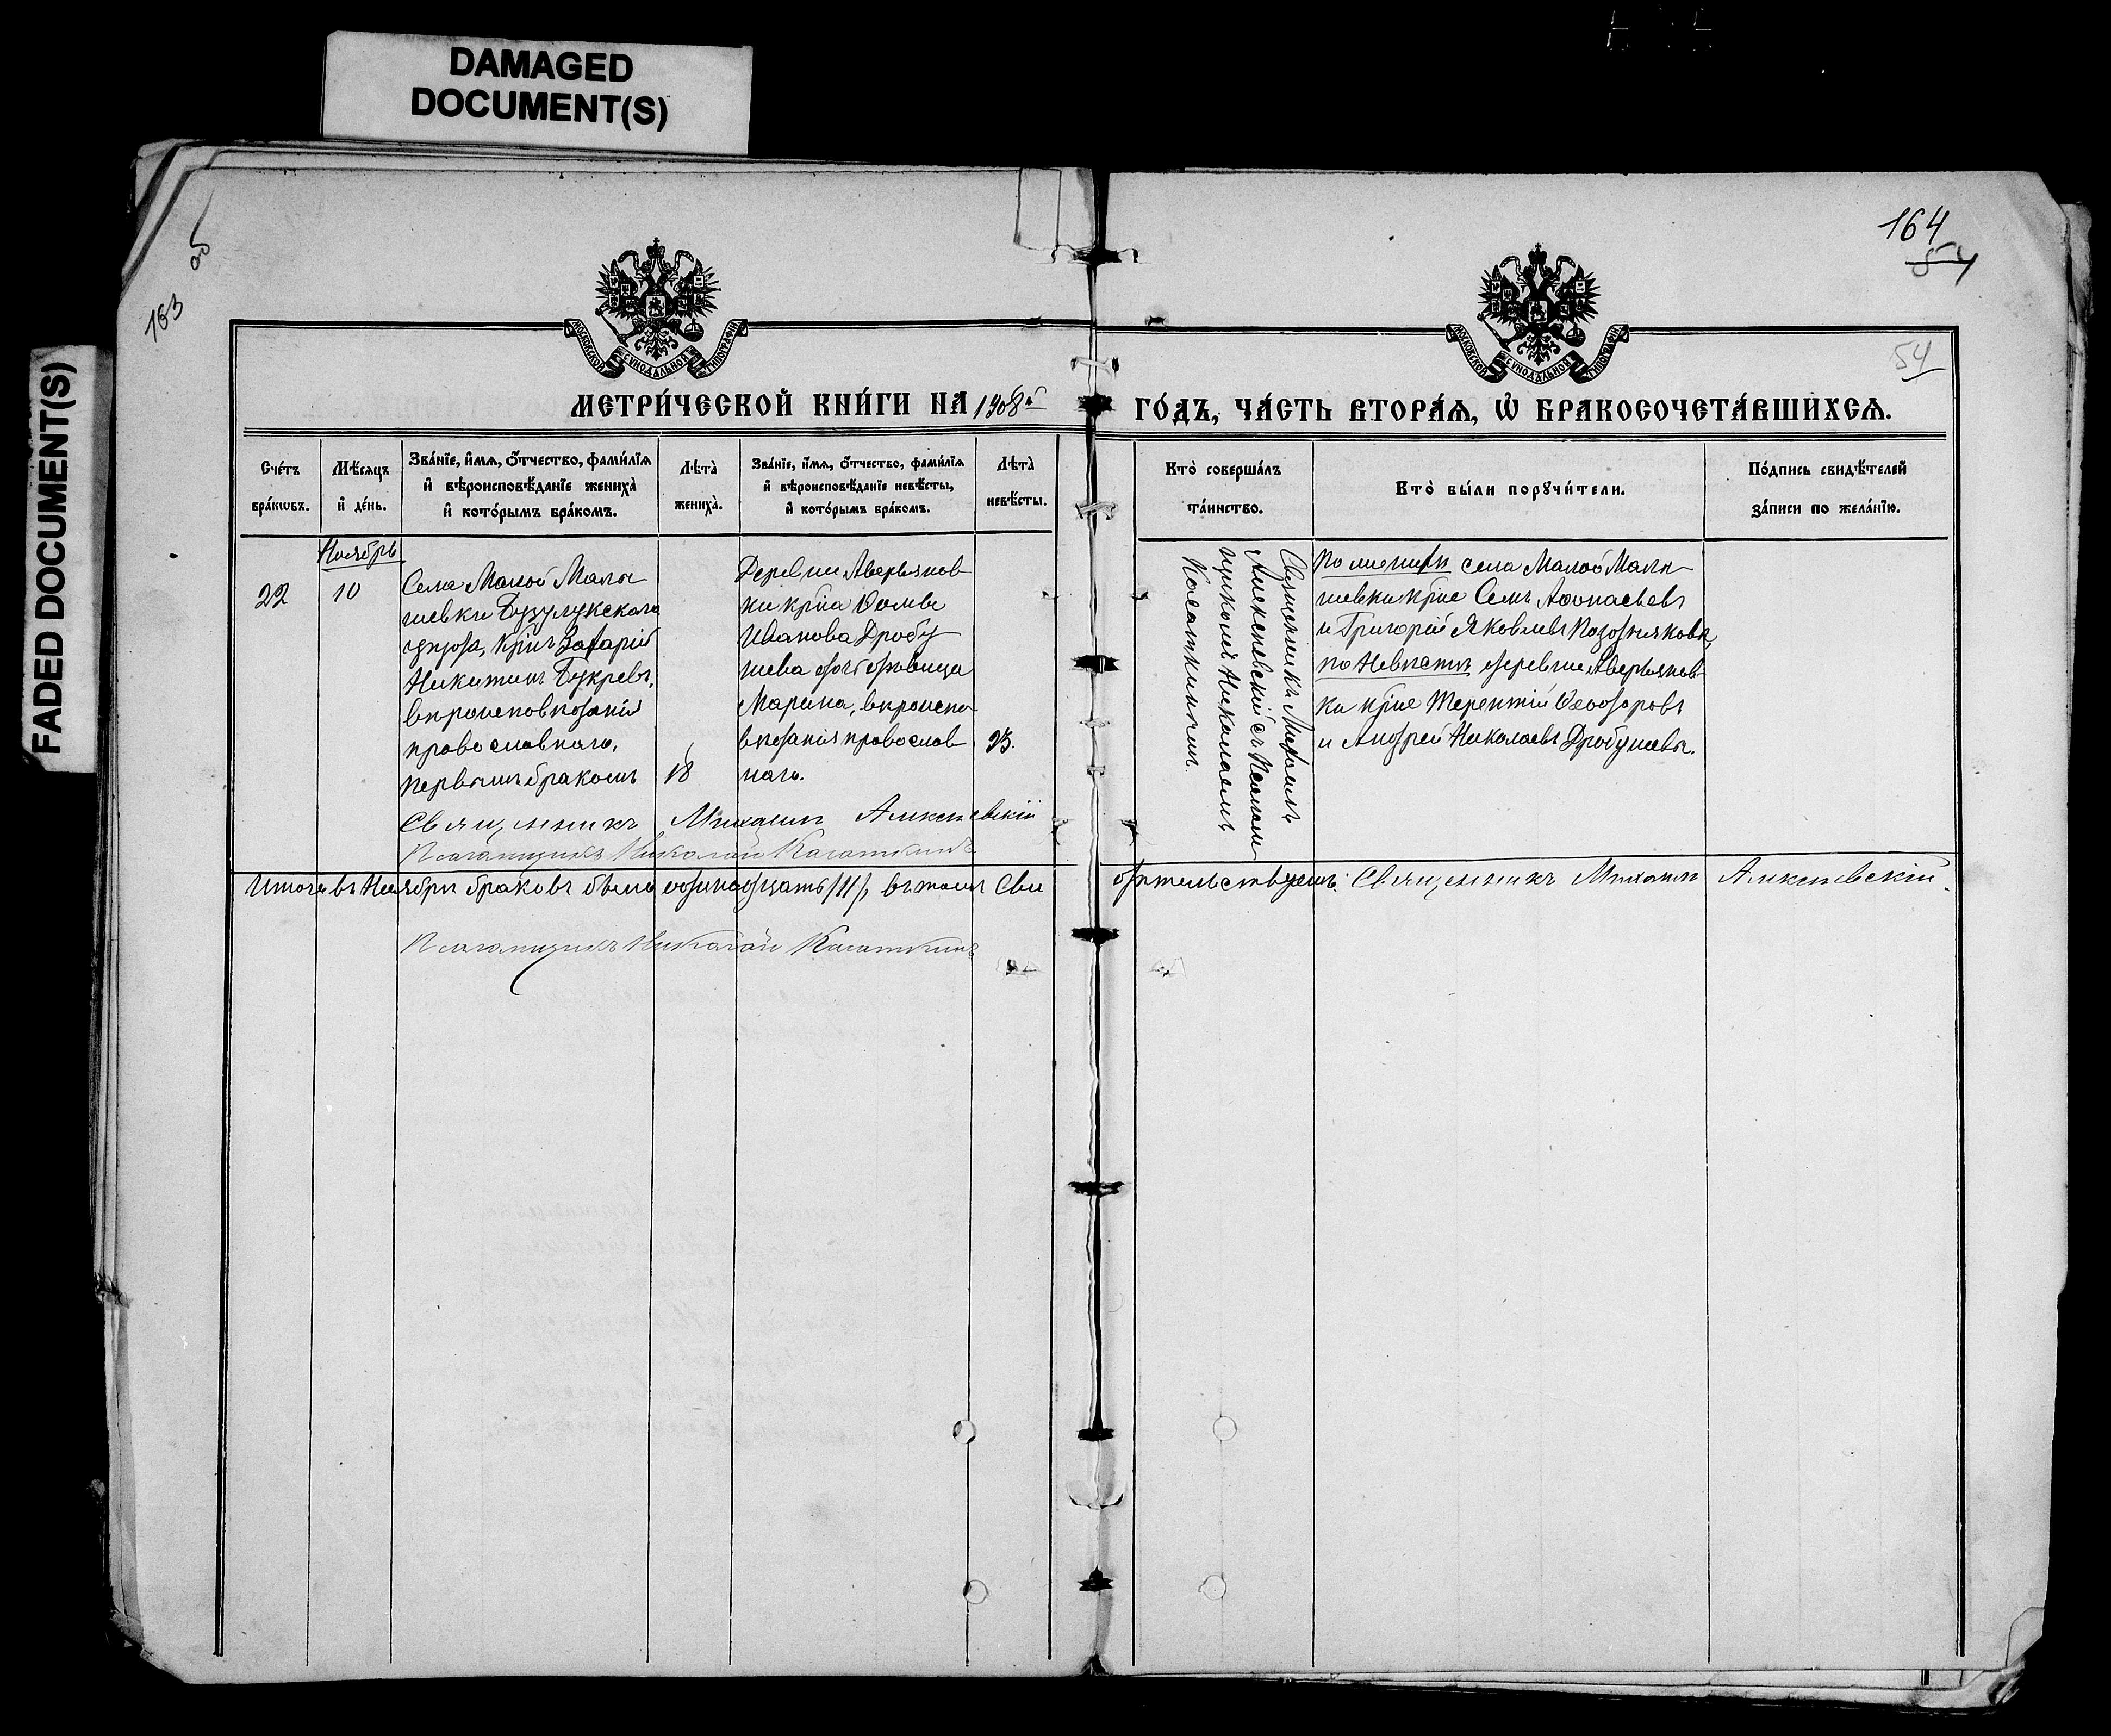 DAMAGED
DOCUMENT(S)
FADED DOCUMENT(S)
163
об
164
54
54
МОСКОВСКОЙ СѴНОДАЛЬНОЙ ТИПОГРАФІИ
МОСКОВСКОЙ СѴНОДАЛЬНОЙ ТИПОГРАФІИ
МЕТРИ́ЧЕСКОЙ КНИ́ГИ НА 1908й
ГО́ДЪ, ЧА́СТЬ ВТОРА́Ѧ, Ѽ БРАКОСОЧЕТА́ВШИХСѦ.
Сче́тъ
бра́кѡвъ.
Мѣ́сяцъ
и҆ де́нь.
Зва́нїе, и҆́мѧ, ѻ҆́тчество, фами́лїѧ
и҆ вѣроисповѣ́данїе жениха̀
и҆ кото́рымъ бра́комъ.
Лѣта̀
жениха̀.
Зва́нїе, и҆́мѧ, ѻ҆́тчество, фами́лїѧ
и҆ вѣроисповѣ́данїе невѣ́сты,
и҆ кото́рымъ бра́комъ.
Лѣта̀
невѣ́сты.
Кто̀ соверша́лъ
та́инство.
Кто̀ бы́ли порꙋчи́тели.
По́дпись свидѣ́телей
за́писи по жела́нїю.
Ноябрь
22
10
Села Малой Малы
шевки Бузулукскаго
уѣзда, кр̃нъ Захарій
Никитинъ Букревъ,
вѣроисповѣданія
православнаго,
первымъ бракомъ
18
Деревни Аверьянов
ки кр̃на Ѳомы
Иванова Дробу
шева дочь дѣвица
Марина, вѣроиспо
вѣданія православ
наго.
23.
Священникъ Михаилъ
Алексѣевскій съ Псалом
щикомъ Николаемъ
Косаткинымъ.
По женихѣ села Малой Малы
шевки кр̃не Семъ Аѳонасьевъ
и Григорій Яковлевъ Поздняковы,
по невѣстѣ деревни Аверьянов
ки кр̃не Терентій Ѳеодоровъ
и Андрей Николаевъ Дробушевы.
Священникъ Михаилъ Алексѣевскій
Псаломщикъ Николай Касаткинъ
Итого въ Ноябрѣ браковъ было одинадцать /11/, въ томъ Сви
дѣтельствуемъ: Священникъ Михаилъ Алексѣевскій.
Псаломщикъ Николай Касаткинъ